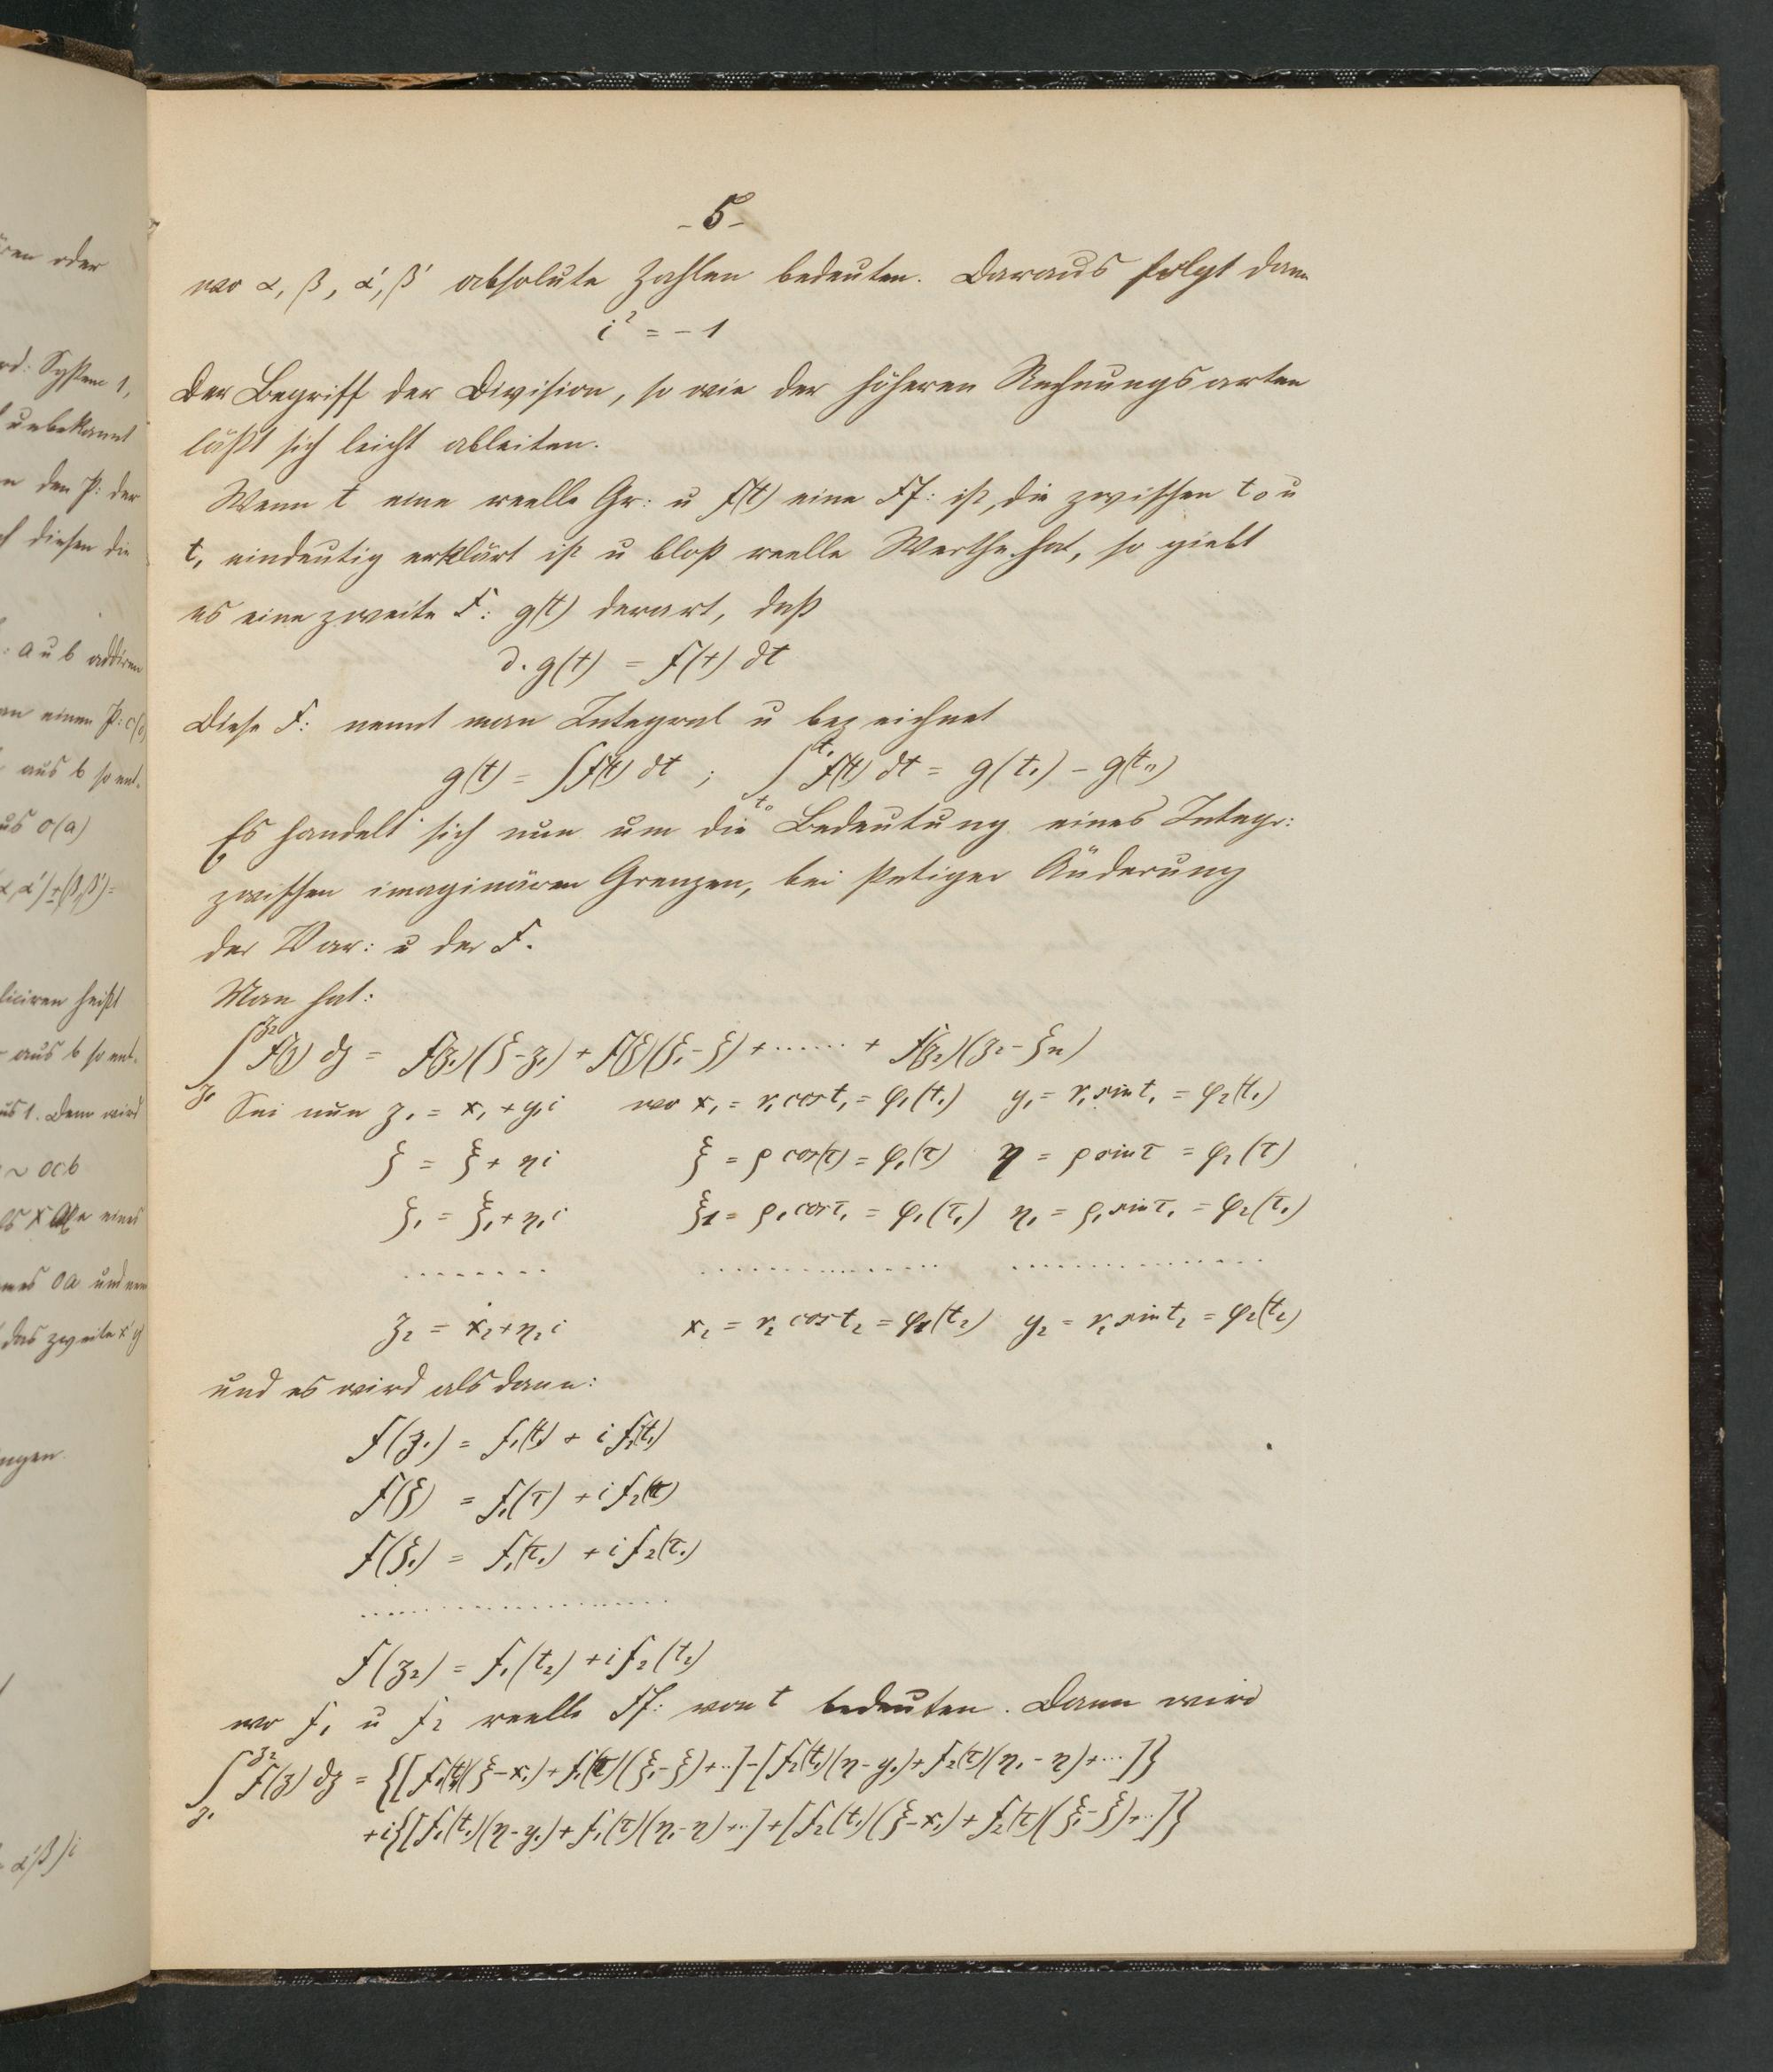 -5-
wo α, β, α', β' absolute Zahlen bedeuten. Daraus folgt dann
i² = -1
Der Begriff der Division, so wie der höheren Rechnungsarten
läßt sich leicht ableiten.
Wenn t eine reelle Gr: u f(t) eine Ff: ist, die zwischen t₀ u
t₁ eindeutig erklärt ist u bloß reelle Werthe hat, so giebt
es eine zweite F: g(t) derart, daß
d. g(t) = f(t) dt
Diese F: nennt man Integral u bezeichnet
g(t) = ∫f(t) dt ; ∫_{t₀}^{t₁} f(t) dt = g(t₁) - g(t₀)
Es handelt sich nun um die Bedeutung eines Integr:
zwischen imaginären Grenzen, bei stetiger Änderung
der Var: u der F.
Man hat:
∫_{z₁}^{z₂} f(z) dz = f(z₁)(ζ-z₁) + f(ζ)(ζ₁-ζ) + ...... + f(z₂)(z₂-ζn)
Sei nun z₁ = x₁ + y₁i wo x₁ = r₁ cos t₁ = φ₁(t₁) y₁ = r₁ sin t₁ = φ₂(t₁)
ζ = ξ + ηi ξ = ρ cos(τ) = φ₁(τ) η = ρ sin τ = φ₂(τ)
ζ₁ = ξ₁ + η₁i ξ₁ = ρ₁ cos τ₁ = φ₁(τ₁) η₁ = ρ₁ sin τ₁ = φ₂(τ₁)
........ .............. ..............
z₂ = x₂ + η₂i x₂ = r₂ cos t₂ = φ₁(t₂) y₂ = r₂ sin t₂ = φ₂(t₂)
und es wird alsdann:
f(z₁) = f₁(t₁) + i f₂(t₁)
f(ζ) = f₁(τ) + i f₂(τ)
f(ζ₁) = f₁(τ₁) + i f₂(τ₁)
....................
f(z₂) = f₁(t₂) + i f₂(t₂)
wo f₁ u f₂ reelle Ff: von t bedeuten. Dann wird
∫_{z₁}^{z₂} f(z) dz = {[f₁(t₁)(ξ-x₁) + f₁(τ)(ξ₁-ξ) + ..] - [f₂(t₁)(η-y₁) + f₂(τ)(η₁-η) + ...]}
+i{[f₁(t₁)(η-y₁) + f₁(τ)(η₁-η) + ..] + [f₂(t₁)(ξ-x₁) + f₂(τ)(ξ₁-ξ) + ..]}